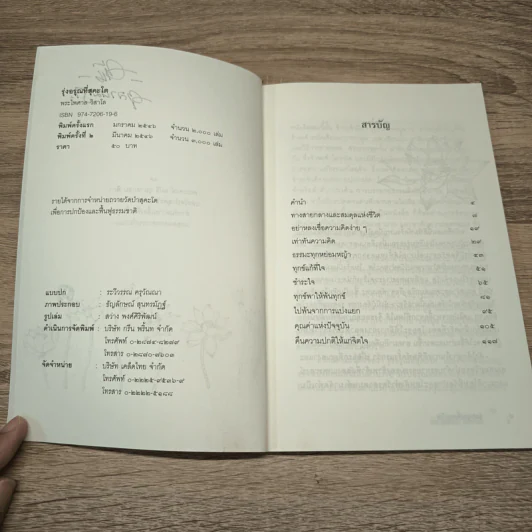 รุ่งอรุณที่สุคะโต
พระไพศาล วิสาโล
ISBN 974-7206-19-6
พิมพ์ครั้งแรก มกราคม ๒๕๔๖ จำนวน ๒,๐๐๐ เล่ม
พิมพ์ครั้งที่ ๒ มีนาคม ๒๕๔๖ จำนวน ๓,๐๐๐ เล่ม
ราคา ๕๐ บาท
รายได้จากการจำหน่ายถวายวัดป่าสุคะโต
เพื่อการปกป้องและฟื้นฟูธรรมชาติ
แบบปก : ระวีวรรณ
ภาพประกอบ : ธัญลักษณ์ สุนทรมัฏฐ์
รูปเล่ม : สว่าง พงศ์ศิริพัฒน์
ดำเนินการจัดพิมพ์ : บริษัท กรีน พริ้นท จำกัด
โทรศัพท์
โทรสาร
จัดจำหน่าย : บริษัท เคล็ดไทย จำกัด
โทรศัพท์ ๐-๒๒๒๕-๙๕๓๖-๙
โทรสาร ๐-๒๒๒๒-๕๑๘๘
สารบัญ
คำนำ
ทางสายกลางและสมดุลแห่งชีวิต ๗
อย่าหลงเชื่อความคิดง่าย ๆ ๑๙
เท่าทันความคิด ๒๙
ธรรมะทุกหย่อมหญ้า ๔๓
ทุกข์แก้ที่ใจ ๕๑
ชำระใจ ๖๕
ทุกข์พาให้พ้นทุกข์
ไปพ้นจากการแบ่งแยก ๙๕
คุณค่าแห่งปัจจุบัน ๑๐๕
คืนความปกติให้แก่จิตใจ ๑๑๗